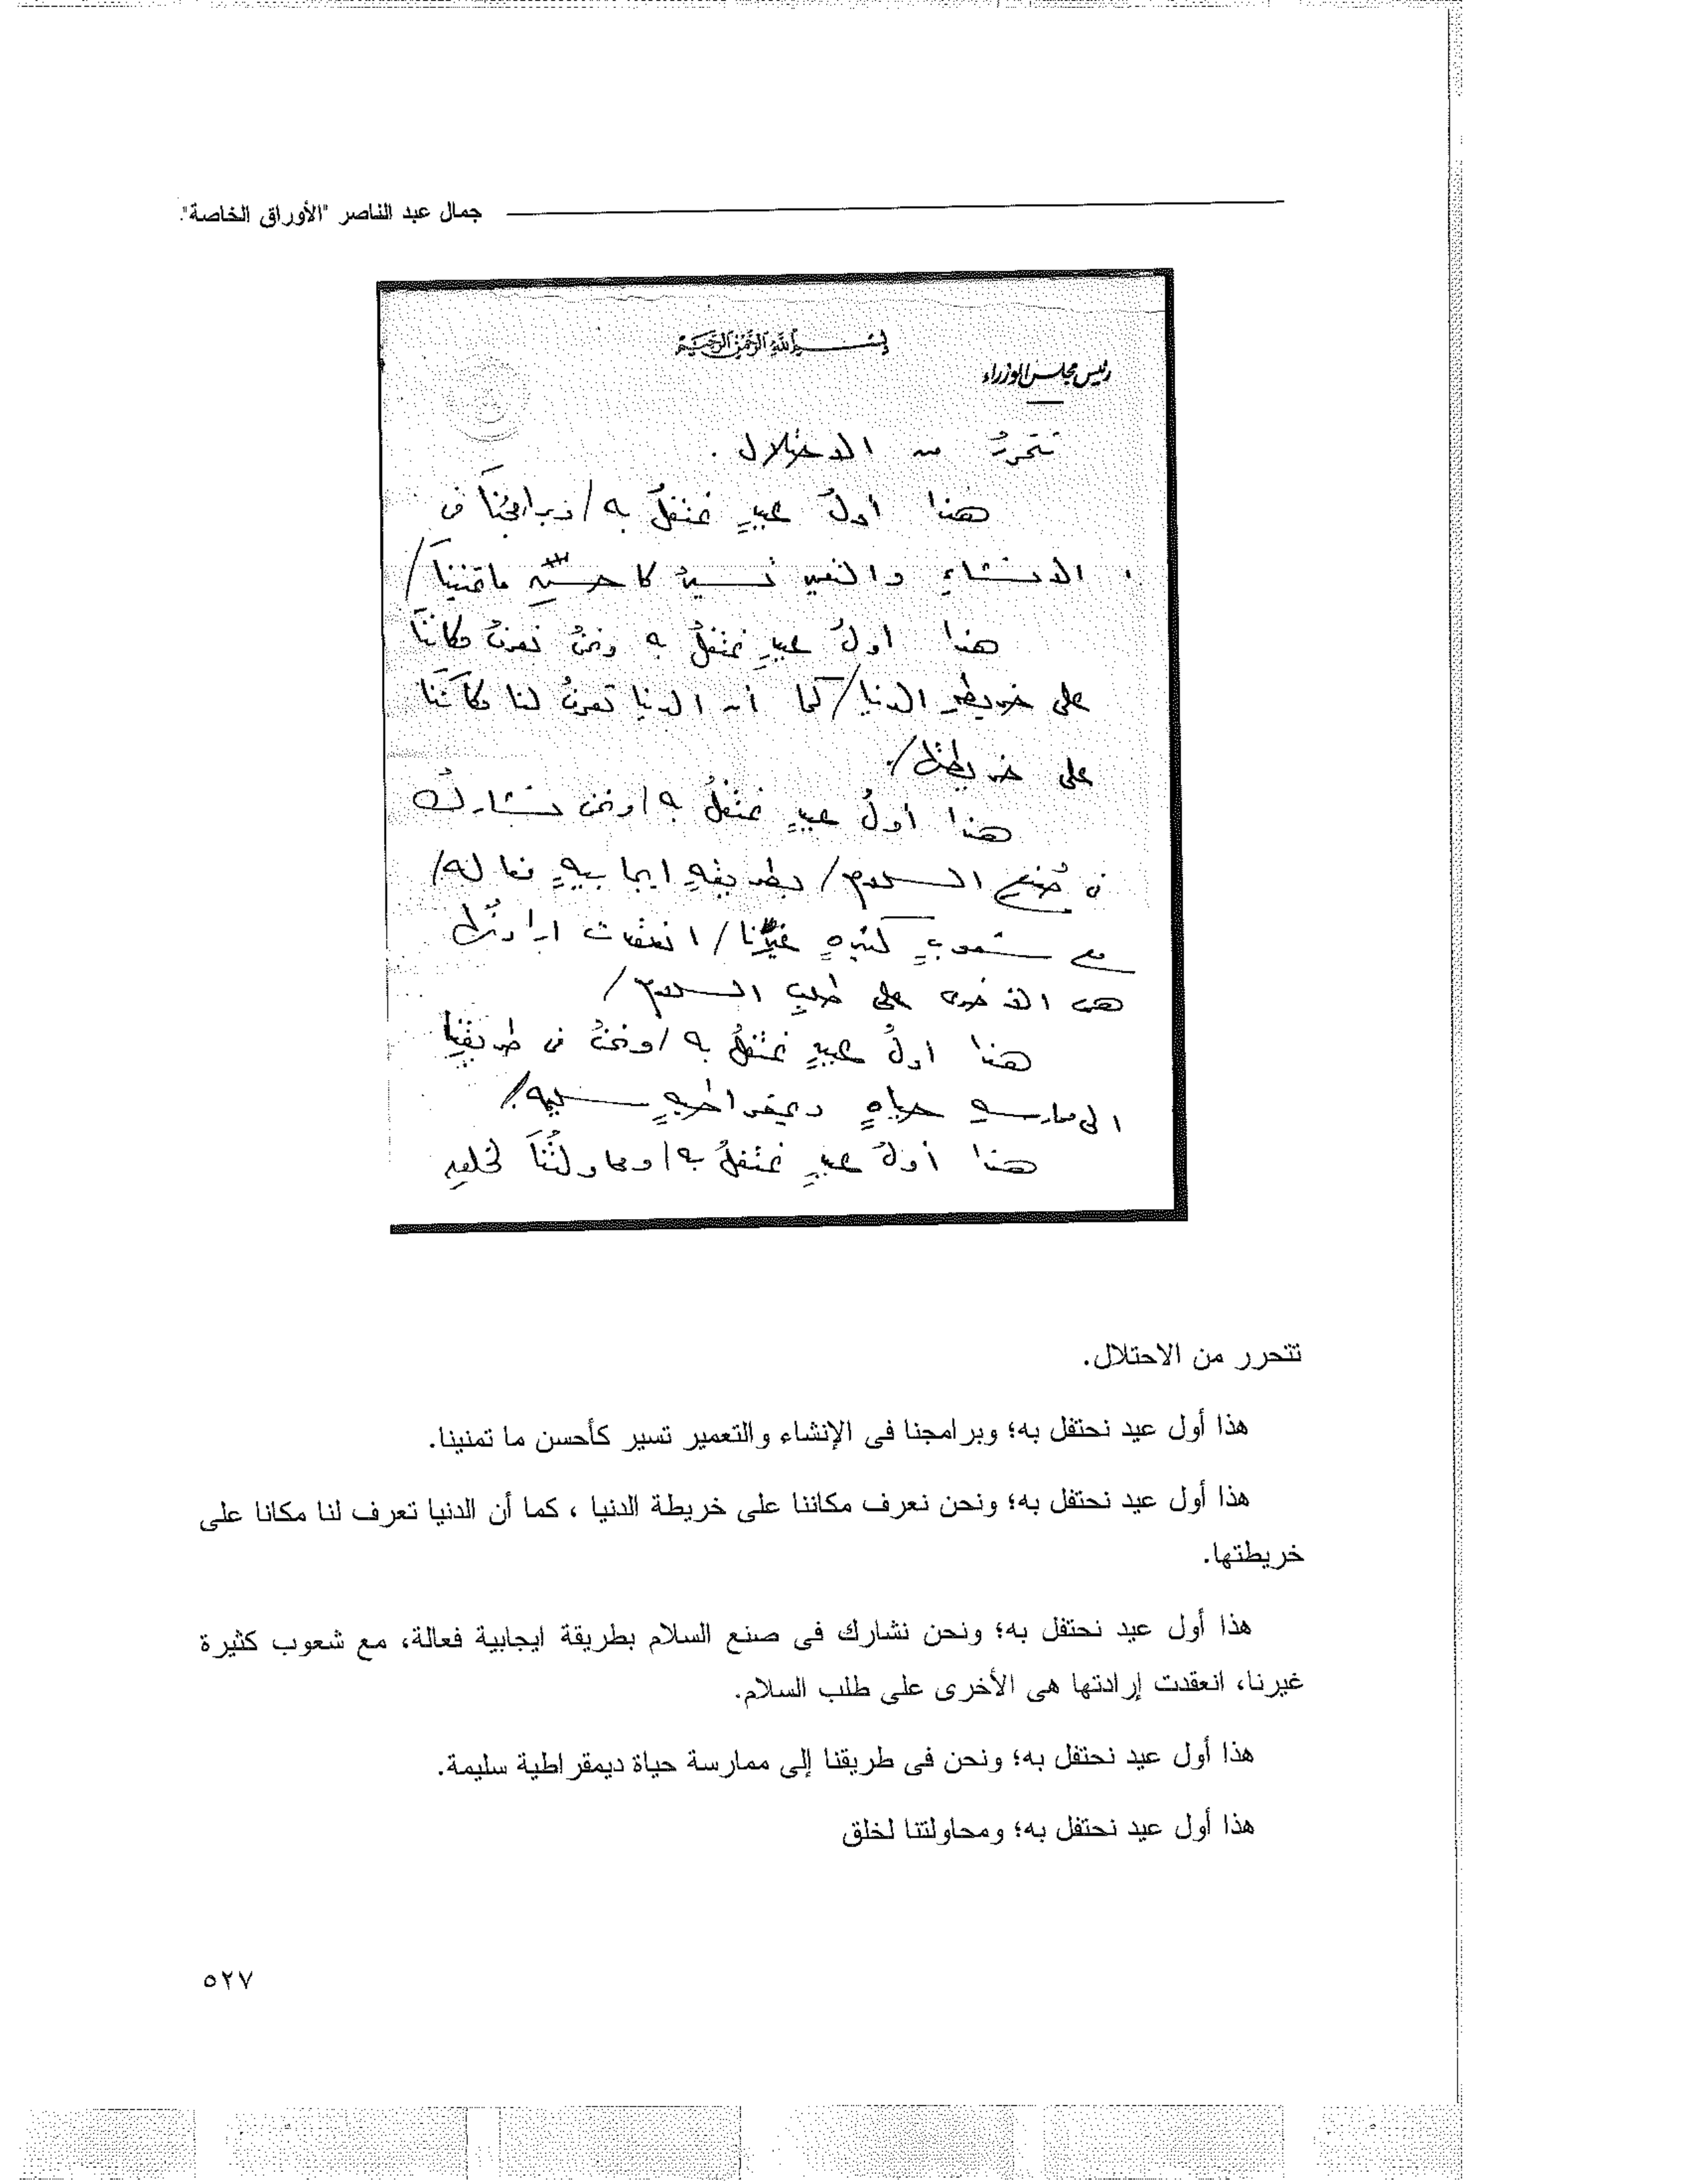 جمال عبد الناصر "الأوراق الخاصة".
بسم الله الرحمن الرحيم
رئيس مجلس الوزراء
نتحررُ من الاحتلال .
هذا أولُ عيدٍ نحتفلُ به / وبرامجُنا فى
الانشاءِ والتعمير تسيرُ كاحسنِ ما تمنينا /
هذا اولُ عيدٍ نحتفلُ به ونحنُ نعرفُ مكانَنا
على خريطةِ الدنيا / كما أن الدنيا تعرفُ لنا مكاَنَنا
على خريطتها /.
هذا أولُ عيدٍ نحتفلُ به / ونحن نشاركُ
فى صُنعِ السلام / بطريقةٍ ايجابيةٍ فعاله /
مع شعوبٍ كثيرهٍ غيرنا / انعقدت ارادتُها
هى الاخرى على طلبِ السلام /
هذا اولُ عيدٍ نحتفلُ به / ونحنُ فى طريقِنا
الى ممارسةِ حياهٍ ديمقراطيهٍ سليمه /.
هذا أولُ عيدٍ نحتفلُ به / ومحاولتُنَا لخلقِ
نتحرر من الاحتلال.
هذا أول عيد نحتفل به؛ وبرامجنا فى الإنشاء والتعمير تسير كأحسن ما تمنينا.
هذا أول عيد نحتفل به؛ ونحن نعرف مكاننا على خريطة الدنيا ، كما أن الدنيا تعرف لنا مكانا على
خريطتها.
هذا أول عيد نحتفل به؛ ونحن نشارك فى صنع السلام بطريقة ايجابية فعالة، مع شعوب كثيرة
غيرنا، انعقدت إرادتها هى الأخرى على طلب السلام.
هذا أول عيد نحتفل به؛ ونحن فى طريقنا إلى ممارسة حياة ديمقراطية سليمة.
هذا أول عيد نحتفل به؛ ومحاولتنا لخلق
٥٢٧